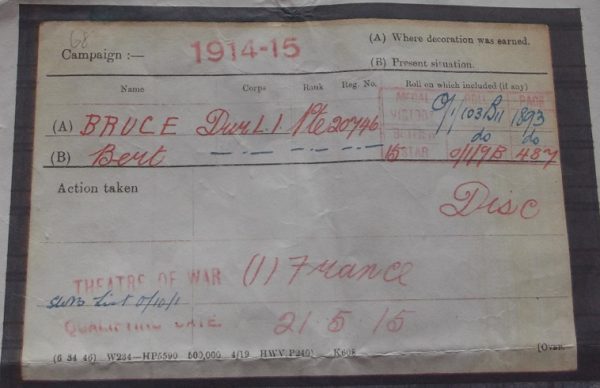 68
Campaign :— 1914-15 (A) Where decoration was earned.
(B) Present situation.
Name Corps Rank Reg. No. Roll on which included (if any)
MEDAL ROLL PAGE
(A) BRUCE Dur L.I. Pte 20746 VICTORY O/1/103 B11 1893
BRITISH do do
(B) Bert — " — — " — — " — 15 STAR O/1/19B 437
Action taken
Disc
THEATRE OF WAR (1) France
SWB List O/10/1
QUALIFYING DATE 21 5 15
(6 34 46) W234—HP5590 500,000 4/19 HWV P240 K608 [Over.